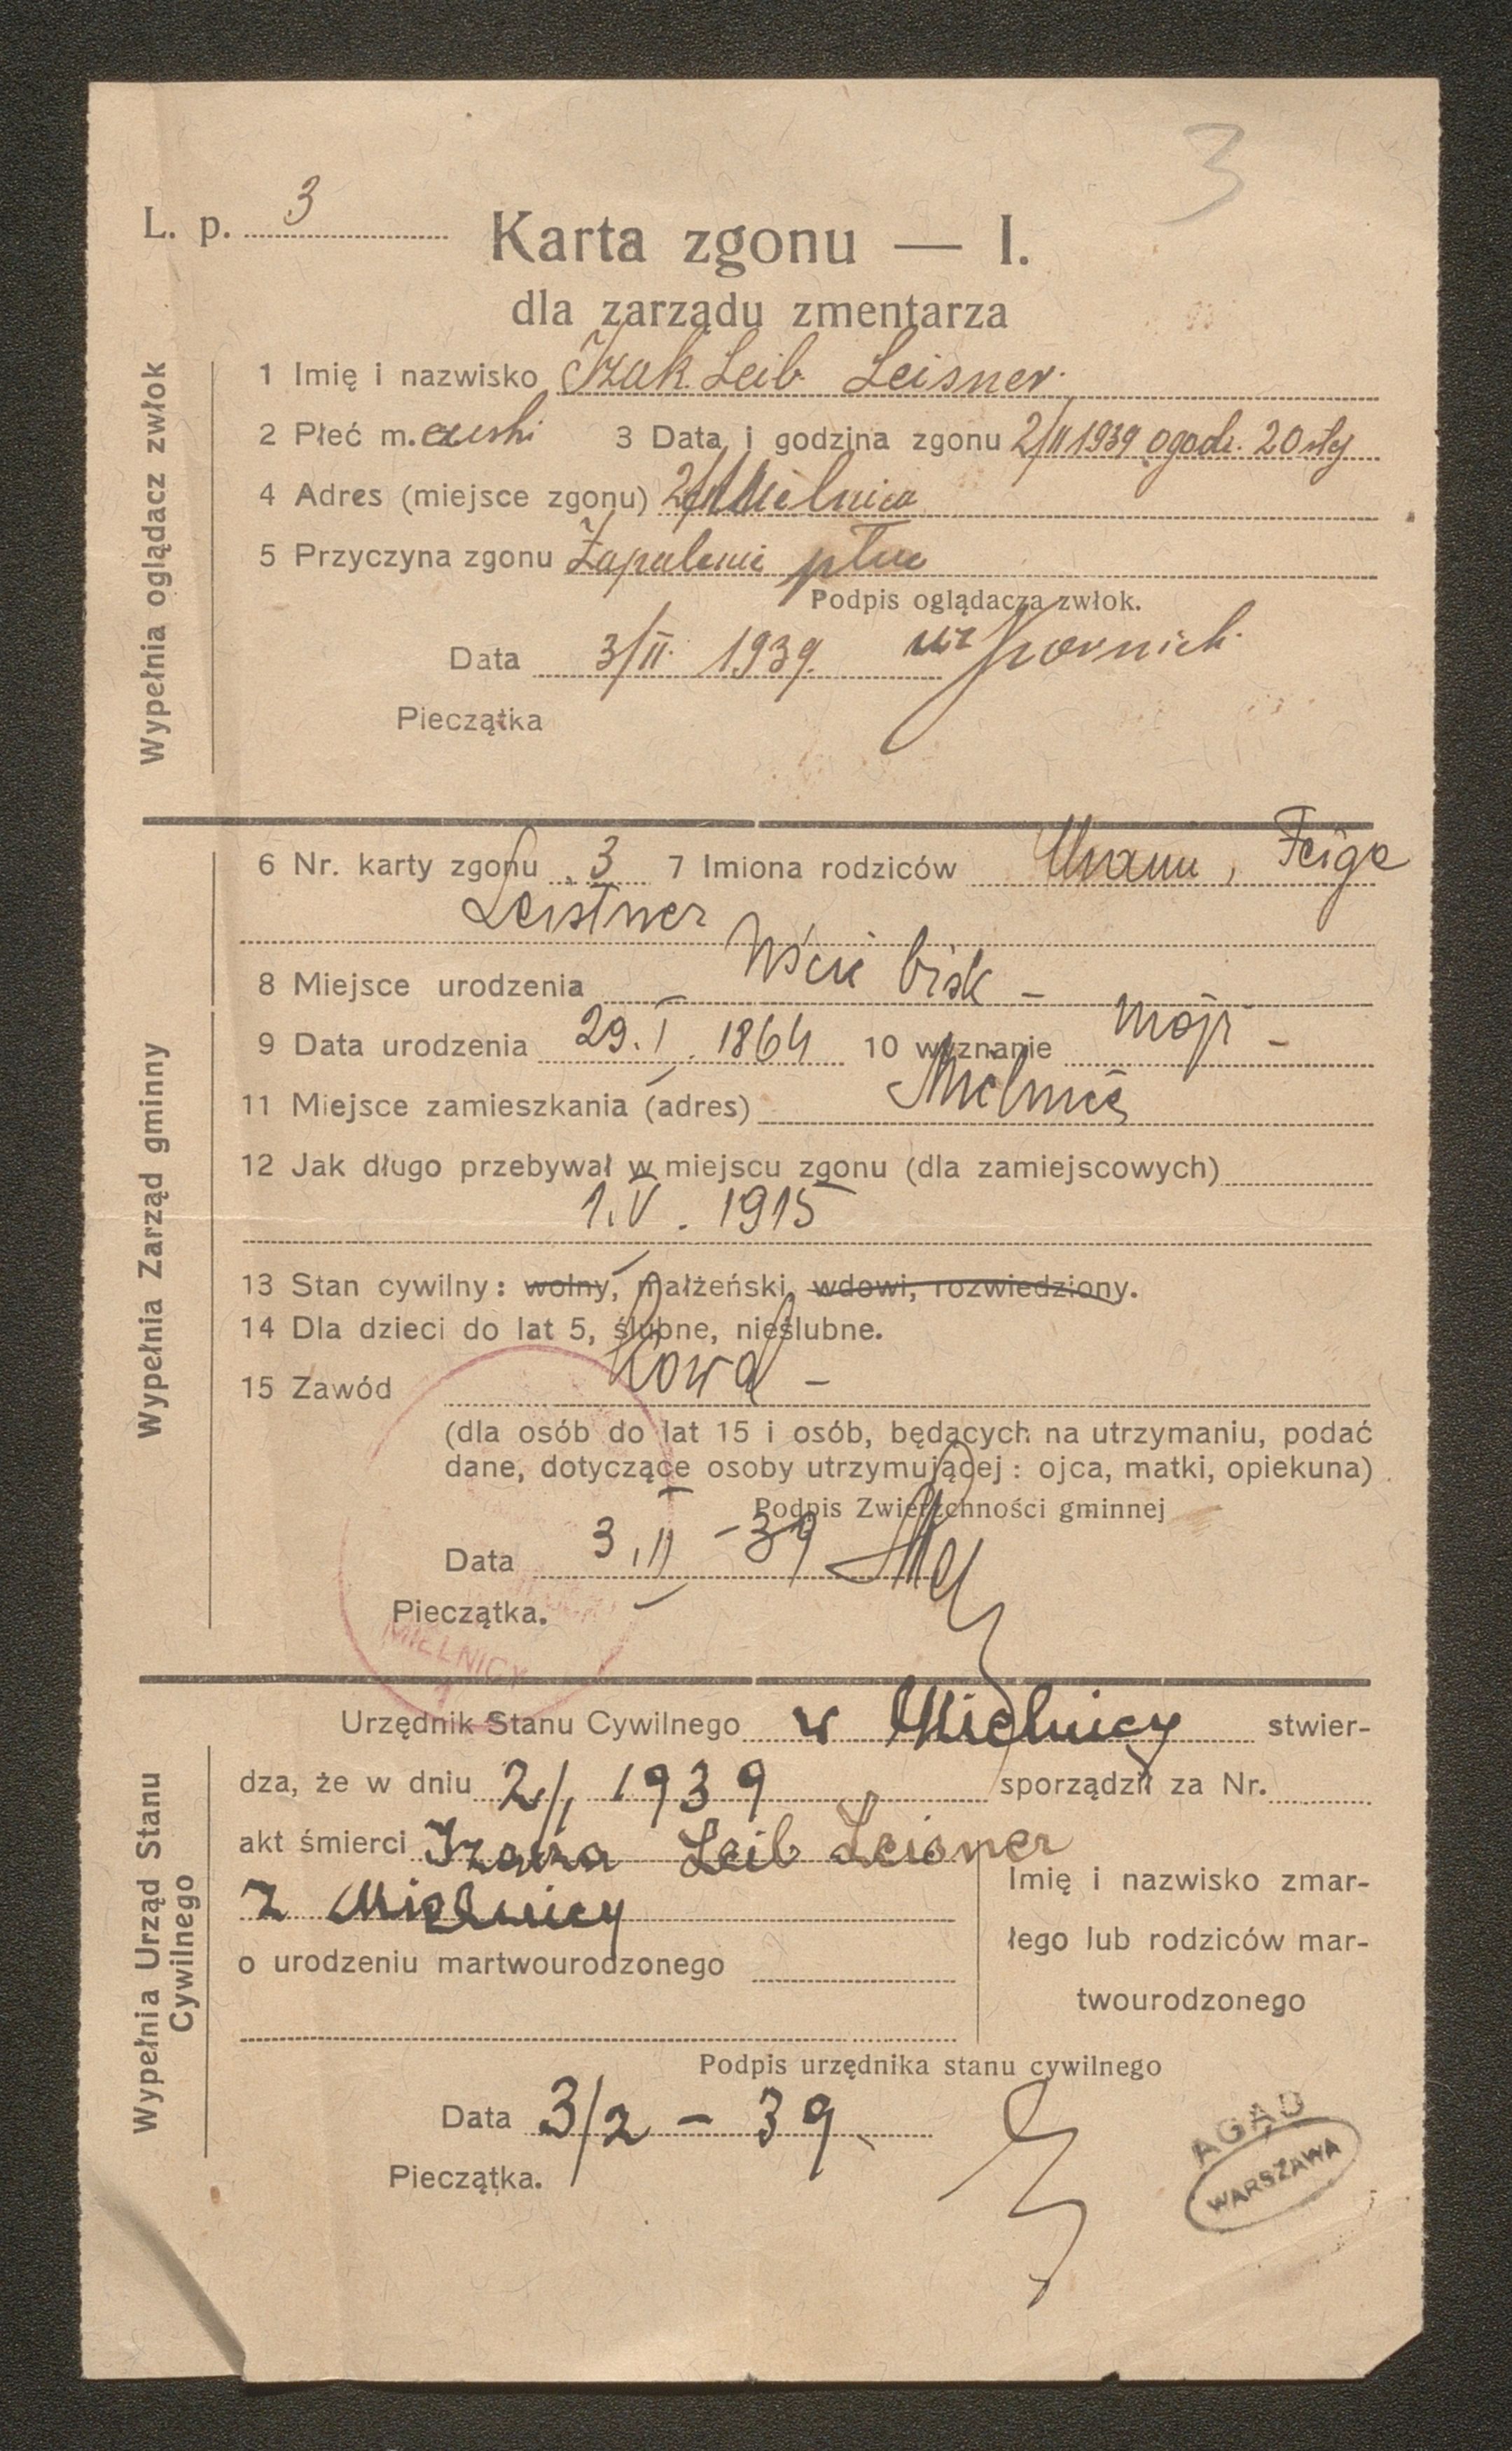 3
L. p. 3
Karta zgonu — I.
dla zarządu zmentarza
Wypełnia oglądacz zwłok
1 Imię i nazwisko Izak Leib Leisner
2 Płeć m. 3 Data i godzina zgonu 2/II 1939 o godz. 20
4 Adres (miejsce zgonu) Mielnica
5 Przyczyna zgonu Zapalenie płuc
Podpis oglądacza zwłok.
Data 3/II 1939.
Pieczątka
Wypełnia Zarząd gminny
6 Nr. karty zgonu 3 7 Imiona rodziców Feiga
Leistner
8 Miejsce urodzenia Uście bisk –
9 Data urodzenia 29. I. 1864 10 wyznanie mojż –
11 Miejsce zamieszkania (adres)
12 Jak długo przebywał w miejscu zgonu (dla zamiejscowych)
1. V. 1915
13 Stan cywilny: wolny, małżeński, wdowi, rozwiedziony.
14 Dla dzieci do lat 5, ślubne, nieślubne.
15 Zawód Kowal –
(dla osób do lat 15 i osób, będących na utrzymaniu, podać
dane, dotyczące osoby utrzymującej: ojca, matki, opiekuna)
Podpis Zwierzchności gminnej
Data 3. II – 39
Pieczątka.
MIELNICY
Wypełnia Urząd Stanu
Cywilnego
Urzędnik Stanu Cywilnego w Mielnicy stwier-
dza, że w dniu 2/ 1939 sporządził za Nr.
akt śmierci Leib Leisner
z Mielnicy
Imię i nazwisko zmar-
łego lub rodziców mar-
twourodzonego
o urodzeniu martwourodzonego
Podpis urzędnika stanu cywilnego
Data 3/2 – 39
Pieczątka.
AGAD
WARSZAWA